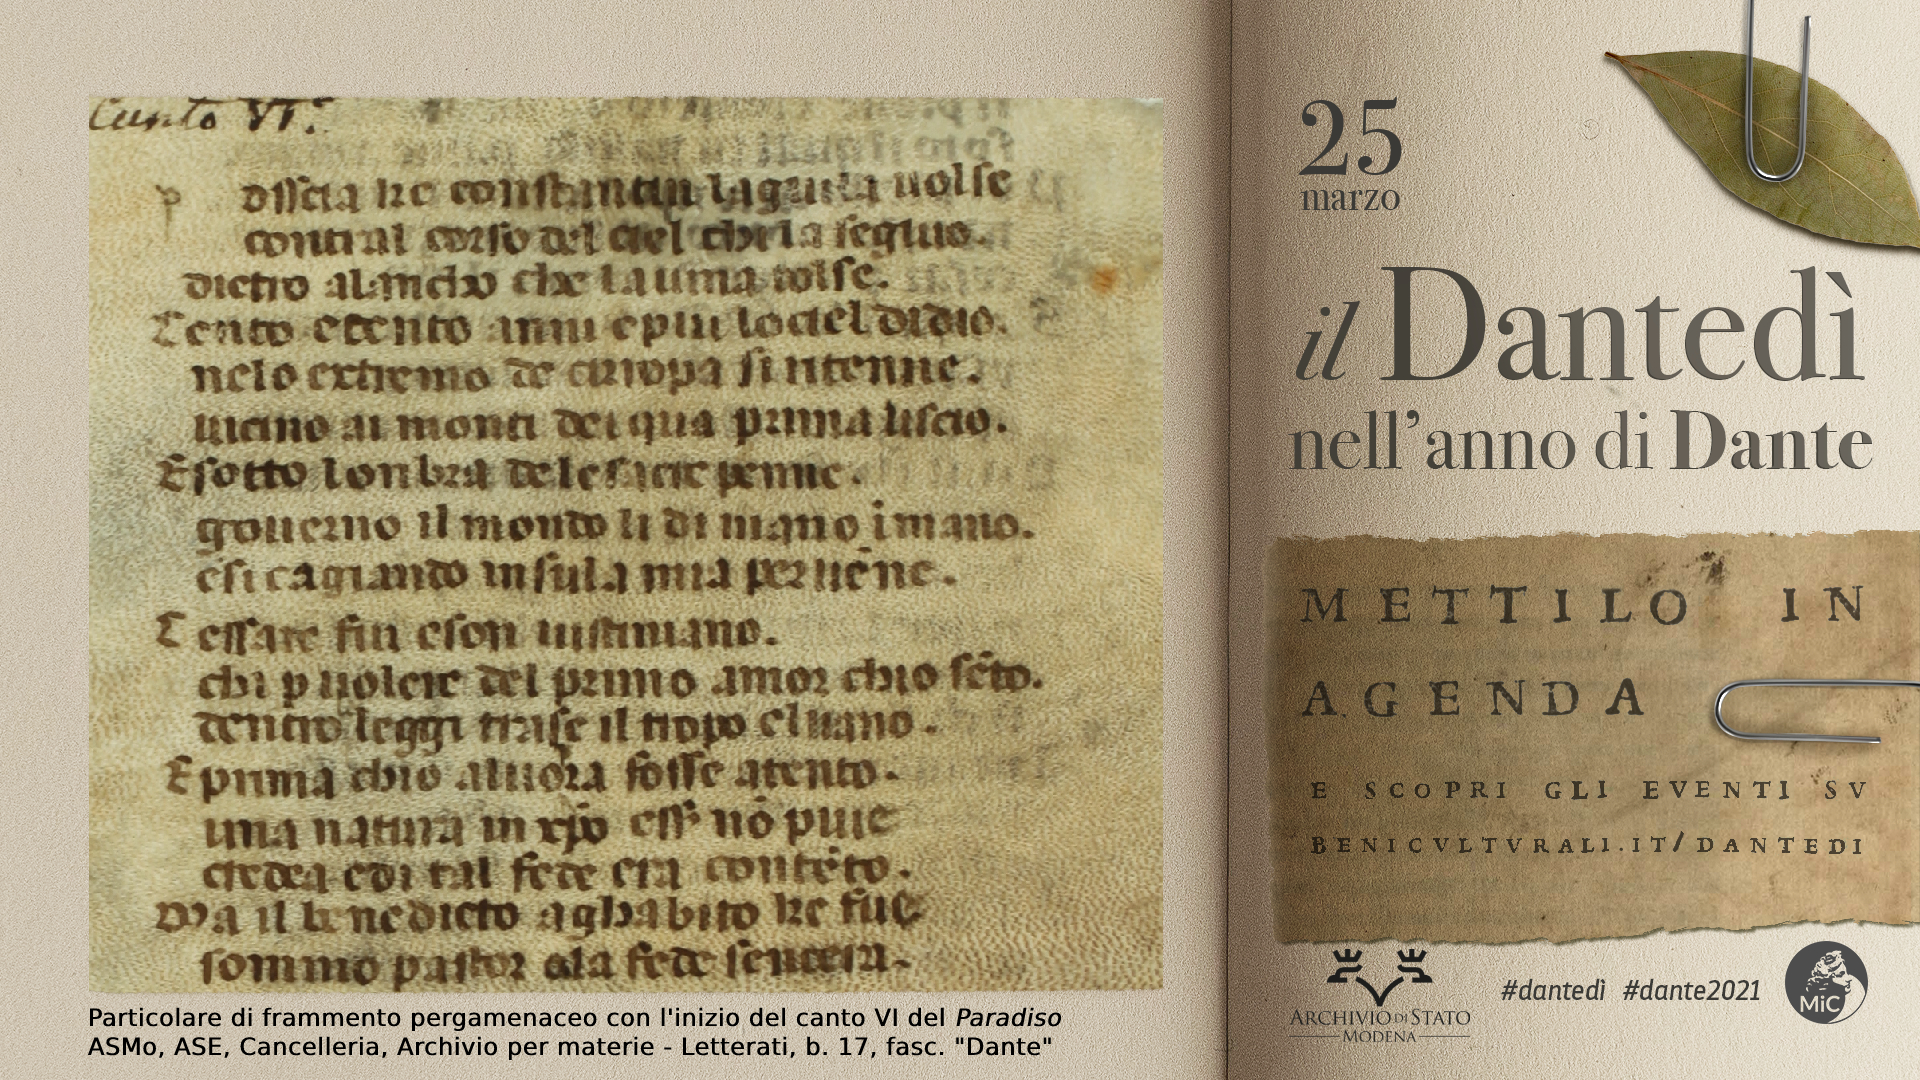 Canto VI.
p osscia ke constantin laguila uolse
contral corso del ciel chella seguio.
dietro alanticho che lauina tolse.
Cento ecento anni epiu locciel didio.
nelo extremo de europa si ritenne.
uicino ai monti dei qua prima uscio.
E sotto lonbra dele sacre penne.
gouerno il mondo li di mano i mano.
esi cagiando insula mia peruēne.
Cessare fui eson iustiniano.
chi p uolere del primo amor chio sēto.
dentro leggi trasse il tropo eluano.
E prima chio aluora fosse atento.
una natura in xp̄o ess' nō piue
credea edi tal fede era contēto.
Ma il benedicto aghabito ke fue
sommo pastor ala fede sencera.
Particolare di frammento pergamenaceo con l'inizio del canto VI del Paradiso
ASMo, ASE, Cancelleria, Archivio per materie - Letterati, b. 17, fasc. "Dante"
25
marzo
il Dantedì
nell'anno di Dante
METTILO IN
AGENDA
E SCOPRI GLI EVENTI SV
BENICVLTVRALI.IT/DANTEDI
ARCHIVIO DI STATO
MODENA
#dantedì #dante2021
MiC